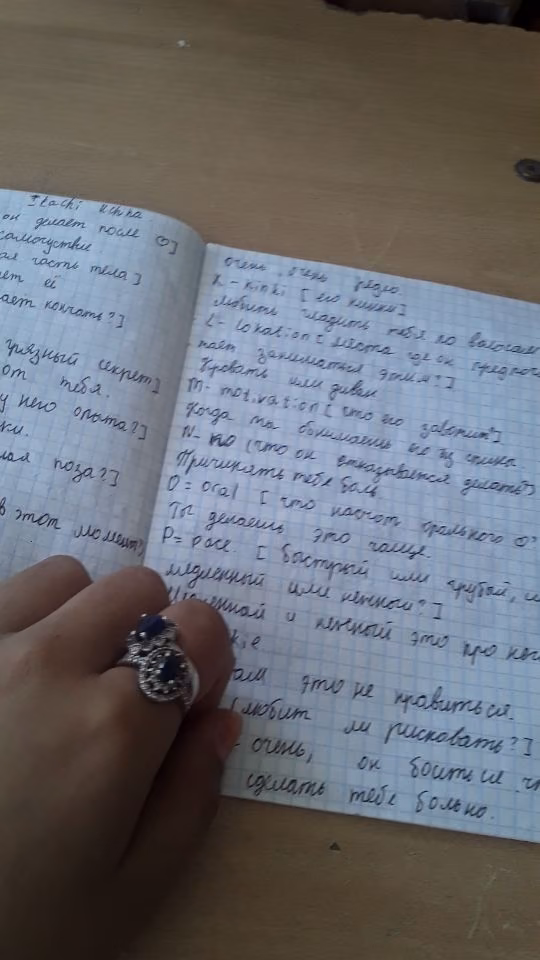 Itachi Uchiha
он делает после ♡]
самочувствие
ая часть тела]
ет ей
ает кончать?]
грязный секрет]
от тебя.
у него опыта?]
ки.
ая поза?]
в этот момент?
очень очень редко
K - kinki [его кинки]
любить гладить тебя по волосам
L - lokation [места где он предпочи
тает заниматься этим?]
Кровать или диван
M - motivation [что его заводит?]
Когда ты обнимаешь его из спины.
N - no (что он отказывается делать?)
Причинять тебе боль.
O = oral [что насчот орального
Ты делаешь это чаще.
P = pace. [быстрый или грубый, и
медленный или нежный?]
и нежный это про него
kie
ам это не нравиться.
[любит ли рисковать?]
очень, он боиться
сделать тебе больно.